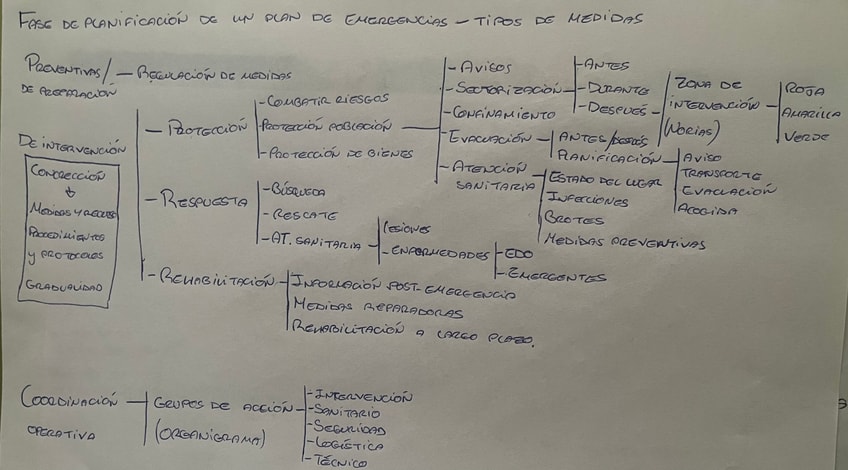 FASE DE PLANIFICACIÓN DE UN PLAN DE EMERGENCIAS – TIPOS DE MEDIDAS
PREVENTIVAS/ – REGULACIÓN DE MEDIDAS
DE PREPARACIÓN
DE INTERVENCIÓN
CONCRECCIÓN
MEDIDAS Y
PROCEDIMIENTOS
Y PROTOCOLOS
GRADUALIDAD
– PROTECCIÓN
– COMBATIR RIESGOS
PROTECCIÓN POBLACIÓN
– PROTECCIÓN DE BIENES
– AVISOS
– SECTORIZACIÓN
– ANTES
– DURANTE
– DESPUÉS
ZONA DE
INTERVENCIÓN
(NORIAS)
ROJA
AMARILLA
VERDE
– CONFINAMIENTO
– EVACUACIÓN
ANTES/
PLANIFICACIÓN
AVISO
TRANSPORTE
EVACUACIÓN
ACOGIDA
– ATENCIÓN
SANITARIA
ESTADO DEL LUGAR
INFECCIONES
BROTES
MEDIDAS PREVENTIVAS
– RESPUESTA
– BÚSQUEDA
– RESCATE
– AT. SANITARIA
LESIONES
– ENFERMEDADES
– EDO
– EMERGENTES
– REHABILITACIÓN
INFORMACIÓN POST-EMERGENCIA
MEDIDAS REPARADORAS
REHABILITACIÓN A LARGO PLAZO.
COORDINACIÓN
OPERATIVA
GRUPOS DE ACCIÓN
(ORGANIGRAMA)
– INTERVENCIÓN
– SANITARIO
– SEGURIDAD
– LOGÍSTICA
– TÉCNICO